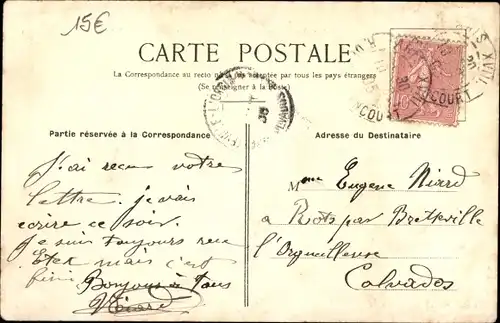 15€
CARTE POSTALE
La Correspondance au recto n'est pas acceptée par tous les pays étrangers
(Se renseigner à la Poste)
Partie réservée à la Correspondance
J'ai reçu votre
lettre. je vais
écrire ce soir.
je suis toujours
mais c'est
fini
Bonjour à Tous
Niard
Adresse du Destinataire
Mme Eugene Niard
a Rots par Bretteville
l'Orgueilleuse
Calvados